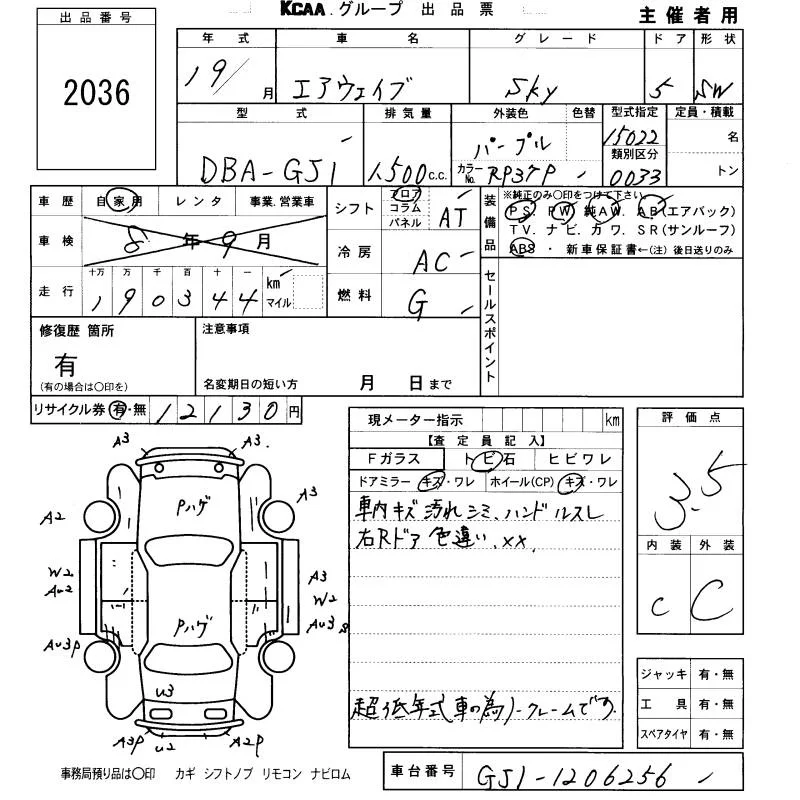 KCAA.グループ 出品票
主催者用
出品番号
2036
年式 車名 グレード ドア 形状
19/ 月 エアウェイブ Sky 5 SW
型式 排気量 外装色 色替 型式指定 定員・積載
DBA-GJ1 1,500c.c. パープル 15022 名
カラーNo. RP37P 類別区分 0033 トン
車歴 自家用 レンタ 事業.営業車
シフト フロア コラム パネル AT
装備品 ※純正のみ〇印をつけて下さい
PS. PW 純AW. AB(エアバック)
TV. ナビ. カワ. SR(サンルーフ)
ABS ・ 新車保証書←(注) 後日送りのみ
車検 8年9月
冷房 AC
走行 十万 万 千 百 十 一 km マイル
190344
燃料 G
セールスポイント
修復歴 箇所
有
(有の場合は〇印を)
注意事項
名変期日の短い方 月 日まで
リサイクル券 有・無 12130円
現メーター指示 km
【査定員記入】
Fガラス トビ石 ヒビワレ
ドアミラー キズ・ワレ ホイール(CP) キズ・ワレ
車内キズ 汚れ シミ、ハンドルスレ
右Rドア 色違い、××.
超低年式車の為ノークレームです
評価点
3.5
内装 外装
C C
A3 A3.
Pハゲ
A3
A2
W2
Au2
A3
W2
Au3 s
Au3P
Pハゲ
U3
A3P U2 A2P
ジャッキ 有・無
工具 有・無
スペアタイヤ 有・無
事務局預り品は〇印 カギ シフトノブ リモコン ナビロム
車台番号 GJ1-1206256